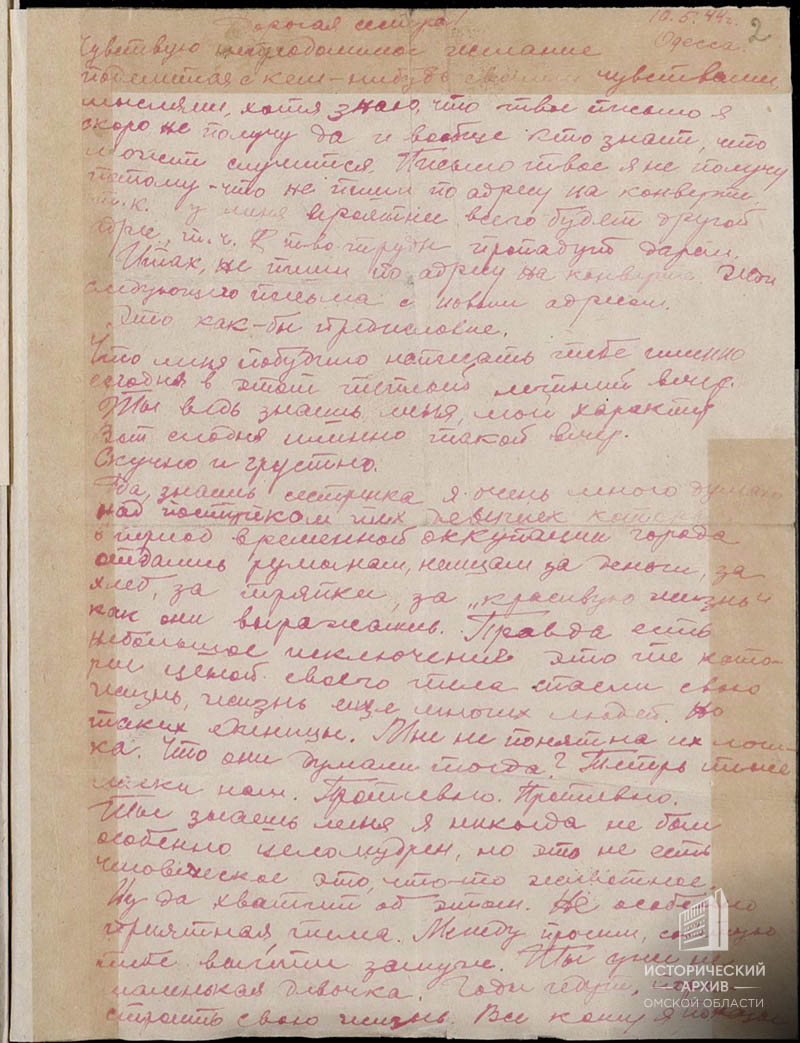 Дорогая сестра!
10.5.44г.
Одесса.
2
Чувствую непреодолимое желание
поделиться с кем-нибудь своими чувствами,
мыслями, хотя знаю, что твое письмо я
скоро не получу да и вообще кто знает, что
может случится. Письмо твое я не получу
потому-что не пиши по адресу на конверте,
т.к. у меня вероятнее всего будет другой
адрес, т.ч. труды пропадут даром.
Итак, не пиши по адресу на конверте. Жди
следующего письма с новым адресом.
Это как-бы предисловие.
Что меня побудило написать тебе именно
сегодня в этот теплый летний вечер.
Ты ведь знаешь меня, мой характер
Вот сегодня именно такой вечер.
Скучно и грустно.
Да, знаешь сестрика я очень много думаю
над поступком тех девушек которые
в период временной оккупации города
отдались румынам, немцам за деньги, за
хлеб, за тряпки, за „красивую жизнь"
как они выражались. Правда есть
небольшое исключение это те кото-
рые ценой своего тела спасли свою
жизнь, жизнь еще многих людей. Но
таких единицы. Мне не понятна их логи-
ка. Что они думали тогда? Теперь
нам. Противно. Противно.
Ты знаешь меня я никогда не был
особенно целомудрен, но это не есть
человеческое это, что-то животное.
Ну да хватит об этом. Не особенно
приятная тема. Между прочим, советую
тебе выйти замуж. Ты уже не
маленькая девочка. Годы идут,
строить свою жизнь. Все кому я
ИСТОРИЧЕСКИЙ
АРХИВ
ОМСКОЙ ОБЛАСТИ